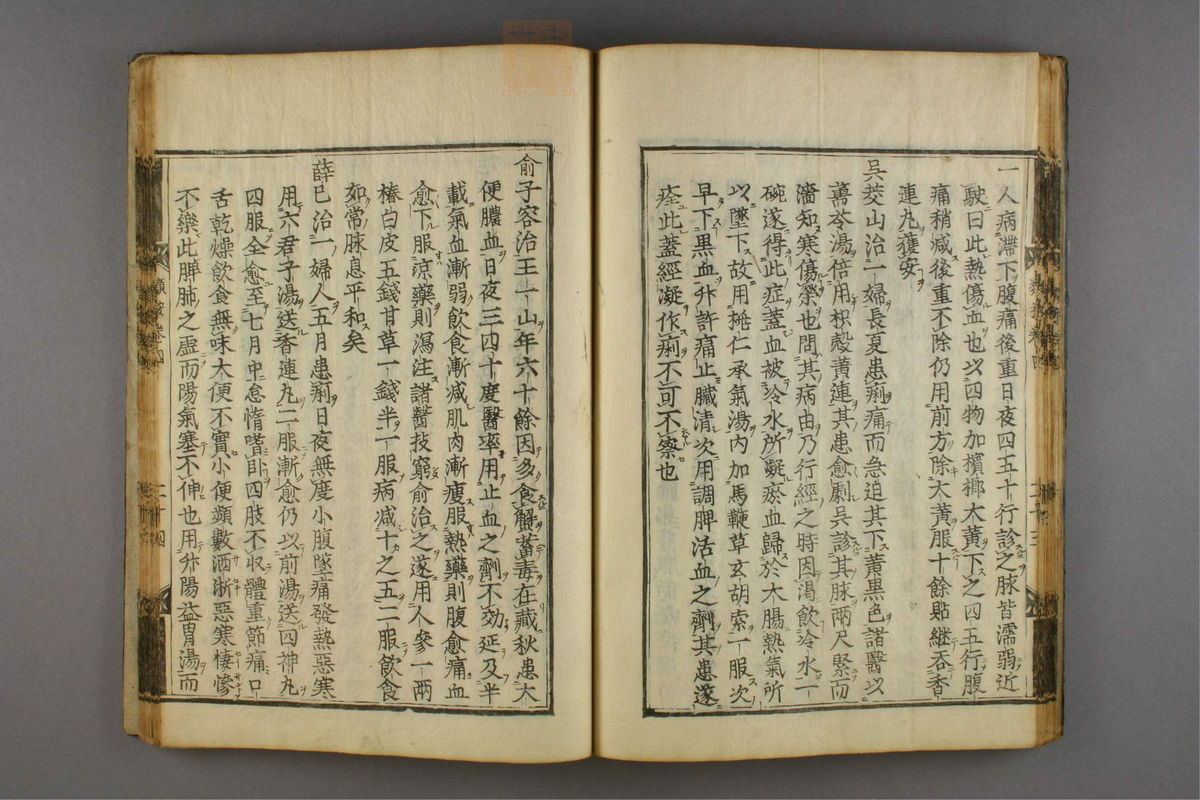 一人病滯下腹痛後重日夜四五十行診之脉皆濡弱近
駛曰此熱傷血也以四物加擯榔大黄下之四五行腹
痛稍減後重不除仍用前方除大黄服十餘貼継吞香
連丸獲安
吳茭山治一婦長夏患痢痛而急迫其下黄黒色諸醫以
薷苓湯倍用枳殻黄連其患愈劇吳診其脉兩尺緊而
濇知寒傷榮也問其病由乃行經之時因渴飲冷水一
碗遂得此症蓋血被冷水所凝瘀血歸於大腸熱氣所
以墜下故用桃仁承氣湯内加馬鞭草玄胡索一服次
早下黒血升許痛止臟清次用調脾活血之劑其患遂
痊此蓋經凝作痢不可不察也
俞子容治王一山年六十餘因多食蟹蓄毒在藏秋患大
便膿血日夜三四十度醫率用止血之劑不効延及半
載氣血漸弱飲食漸減肌肉漸瘦服熱藥則腹愈痛血
愈下服涼藥則瀉注諸醫技窮俞治之遂用人參一兩
椿白皮五錢甘草一錢半一服病減十之五二服飲食
如常脉息平和矣
薛已治一婦人五月患痢日夜無度小腹墜痛發熱惡寒
用六君子湯送香連丸二服漸愈仍以前湯送四神丸
四服全愈至七月中怠惰嗜卧四肢不收體重節痛口
舌乾燥飲食無味大便不實小便蘋數洒淅惡寒悽慘
不樂此脾肺之虚而陽氣塞不伸也用升陽益胃湯而